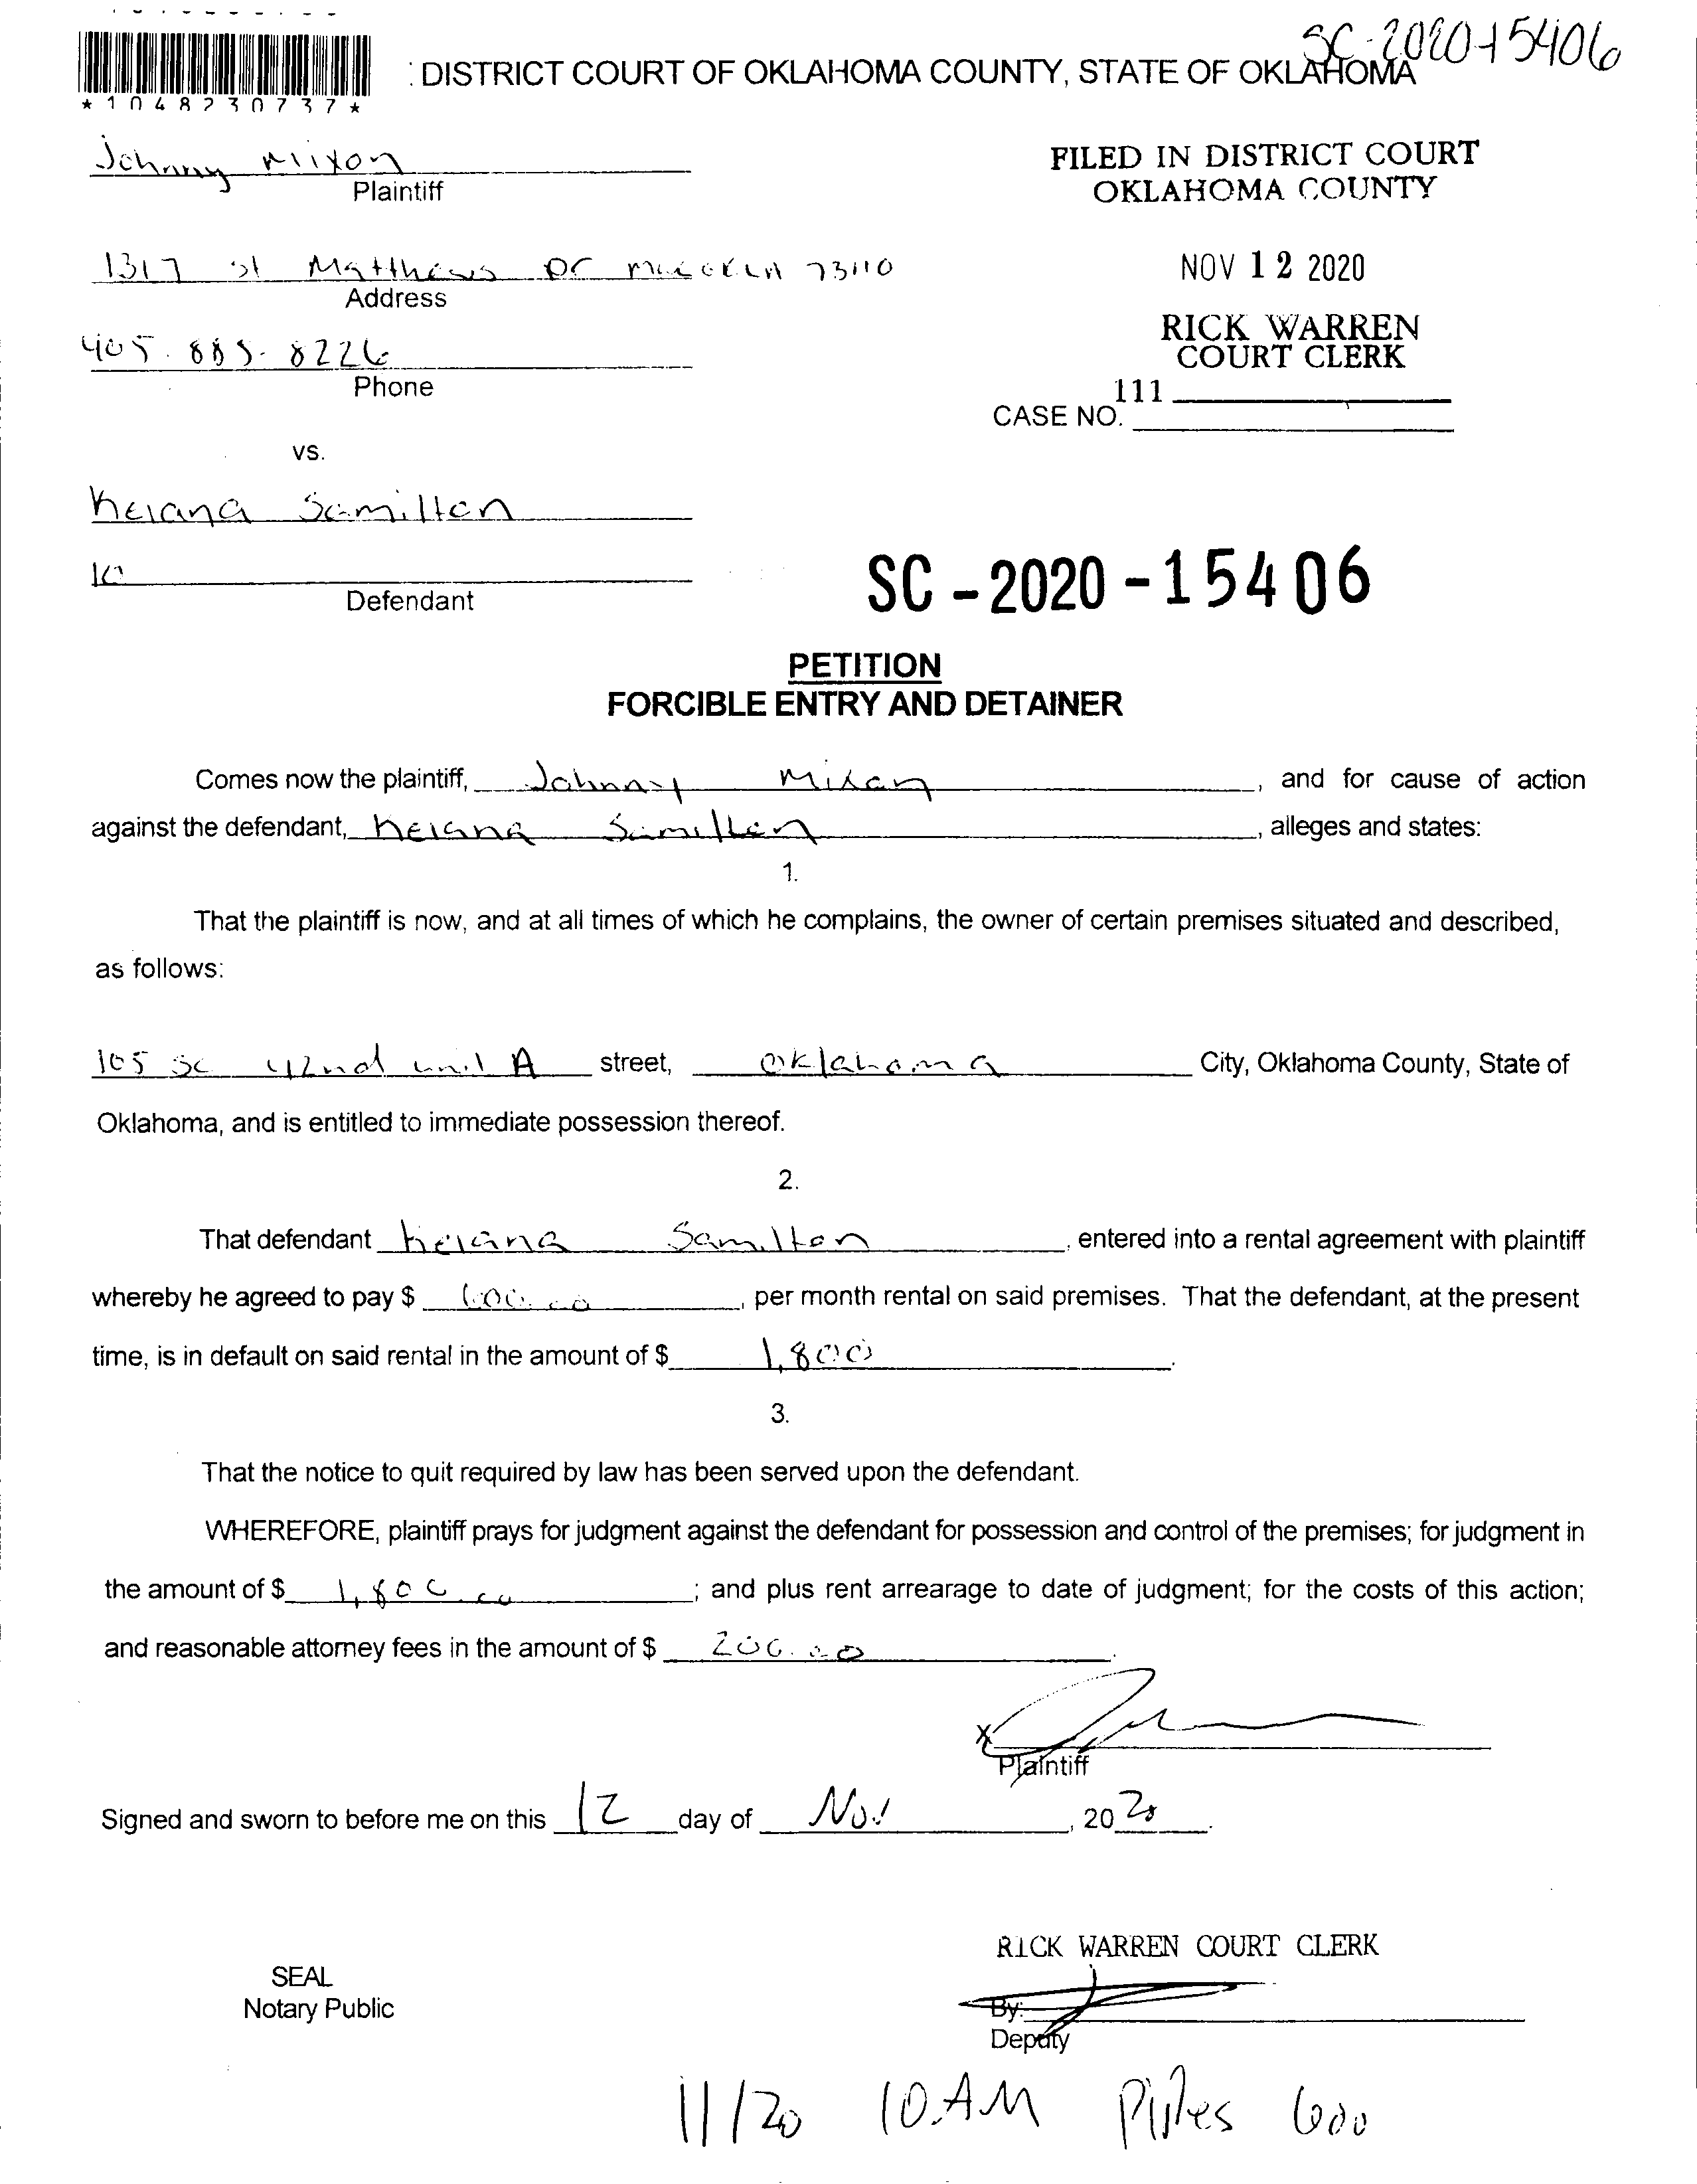 SC-2020-15406
: DISTRICT COURT OF OKLAHOMA COUNTY, STATE OF OKLAHOMA
*1048230737*
Johnny Mixon
Plaintiff
FILED IN DISTRICT COURT
OKLAHOMA COUNTY
1317 St Matthews Dr 73110
Address
NOV 12 2020
RICK WARREN
COURT CLERK
405. 885. 8226
Phone
111
CASE NO.
vs.
Keiana Samilton
Defendant
SC-2020-15406
PETITION
FORCIBLE ENTRY AND DETAINER
Comes now the plaintiff, Johnny Mixon, and for cause of action
against the defendant, Keiana Samilton, alleges and states:
1.
That the plaintiff is now, and at all times of which he complains, the owner of certain premises situated and described,
as follows:
105 SE 42nd unit A street, Oklahoma City, Oklahoma County, State of
Oklahoma, and is entitled to immediate possession thereof.
2.
That defendant Keiana Samilton, entered into a rental agreement with plaintiff
whereby he agreed to pay $ 600.00, per month rental on said premises. That the defendant, at the present
time, is in default on said rental in the amount of $ 1,800.
3.
That the notice to quit required by law has been served upon the defendant.
WHEREFORE, plaintiff prays for judgment against the defendant for possession and control of the premises; for judgment in
the amount of $ 1,800.00; and plus rent arrearage to date of judgment; for the costs of this action;
and reasonable attorney fees in the amount of $ 200.00.
X
Plaintiff
Signed and sworn to before me on this 12 day of Nov, 2020.
RICK WARREN COURT CLERK
SEAL
Notary Public
By:
Deputy
11/20 10 AM Pipes 600